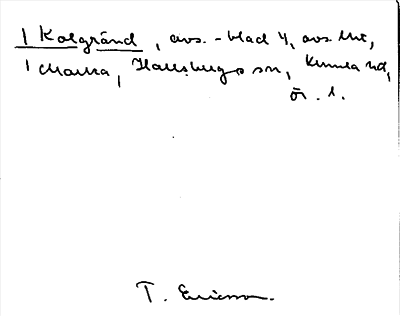 1 Kolgränd, avs. - blad 4, avs. litt,
1 Marka, Hallsbergs sn, Kumla hd,
Ör. l.
T. Ericsson.